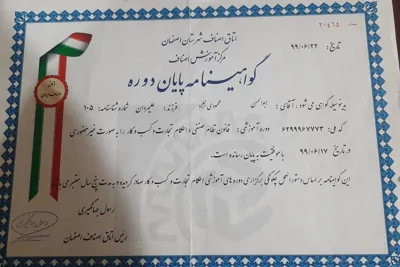 اتاق اصناف شهرستان اصفهان
مرکز آموزش اصناف
تاریخ: ۹۹/۰۶/۲۲
گواهینامه پایان دوره
بدینوسیله گواهی می شود، آقای: ابوالحسن محمودی نژاد فرزند: علیمردان شماره شناسنامه: ۱۰۵
کد ملی: ۶۲۹۹۹۶۷۷۷۲ دوره آموزشی: قانون نظام صنفی و احکام تجارت و کسب و کار را به صورت غیر حضوری
در تاریخ ۹۹/۰۶/۱۷ با موفقیت به پایان رسانده است.
این گواهینامه بر اساس دستورالعمل چگونگی برگزاری دوره های آموزشی احکام تجارت و کسب و کار صادر گردیده و به مدت پنج سال معتبر می باشد.
رسول جهانگیری
رئیس اتاق اصناف اصفهان